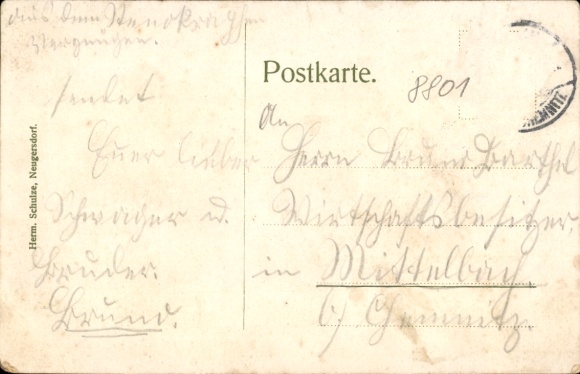 aus dem Stenographen
Vergnügen.
sendet
Euer lieber
Schwager u.
Bruder.
Bruno.
Herm. Schulze, Neugersdorf.
Postkarte.
8801
An
Herrn Bruno Barthel
Wirtschaftsbesitzer,
in Mittelbach,
b/ Chemnitz.